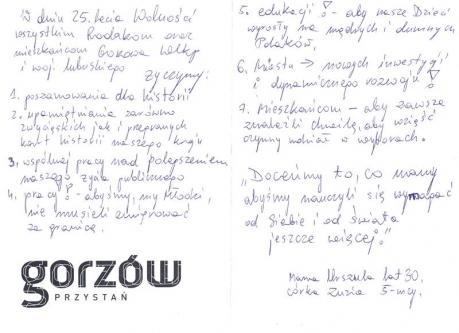 W dniu 25.lecia Wolności
wszystkim Rodakom oraz
mieszkańcom Gorzowa Wlkp
i woj. lubuskiego
życzymy:
1. poszanowania dla historii
2. upamiętniania zarówno
zwycięskich jak i przegranych
kart historii naszego kraju
3. wspólnej pracy nad polepszeniem
naszego życia publicznego
4. pracy! - abyśmy, my Młodzi,
nie musieli emigrować
za granicę.
gorzów
PRZYSTAŃ
5. edukacji! - aby nasze Dzieci
wyrosły na mądrych i dumnych
Polaków.
6. Miastu → nowych inwestycji
i dynamicznego rozwoju!
7. Mieszkańcom - aby zawsze
znaleźli chwilę, aby wziąść
czynny udział w wyborach.
"Doceńmy to, co mamy
abyśmy nauczyli się wymagać
od Siebie i od świata
jeszcze więcej."
Mama Urszula lat 30,
córka Zuzia 5-mcy.